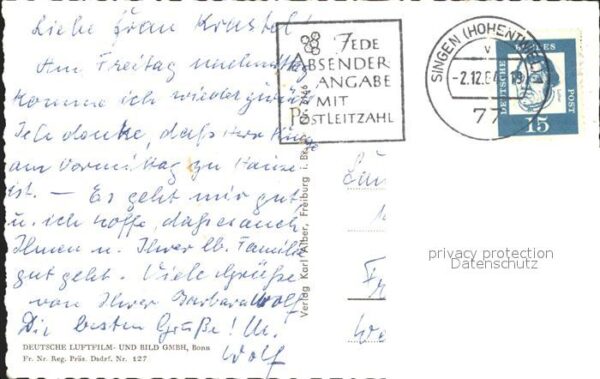 Liebe Frau
Am Freitag nachmittag
komme ich wieder zurück
Ich denke, daß Herr
am Vormittag zu Hause
ist. – Es geht mir gut
u. ich hoffe, daß es auch
Ihnen u. Ihrer lb. Familie
gut geht. Viele Grüße
von Ihrer Barbara Wolf
Die besten Grüße!
Wolf
DEUTSCHE LUFTFILM- UND BILD GMBH, Bonn
Fr. Nr. Reg. Präs. Dsdrf. Nr. 127
Verlag Karl Alber, Freiburg i. Br.
JEDE
ABSENDER
ANGABE
MIT
POSTLEITZAHL
SINGEN (HOHENTWIEL)
-2.12.64
77
DEUTSCHE
BUNDES
POST
15
privacy protection
Datenschutz